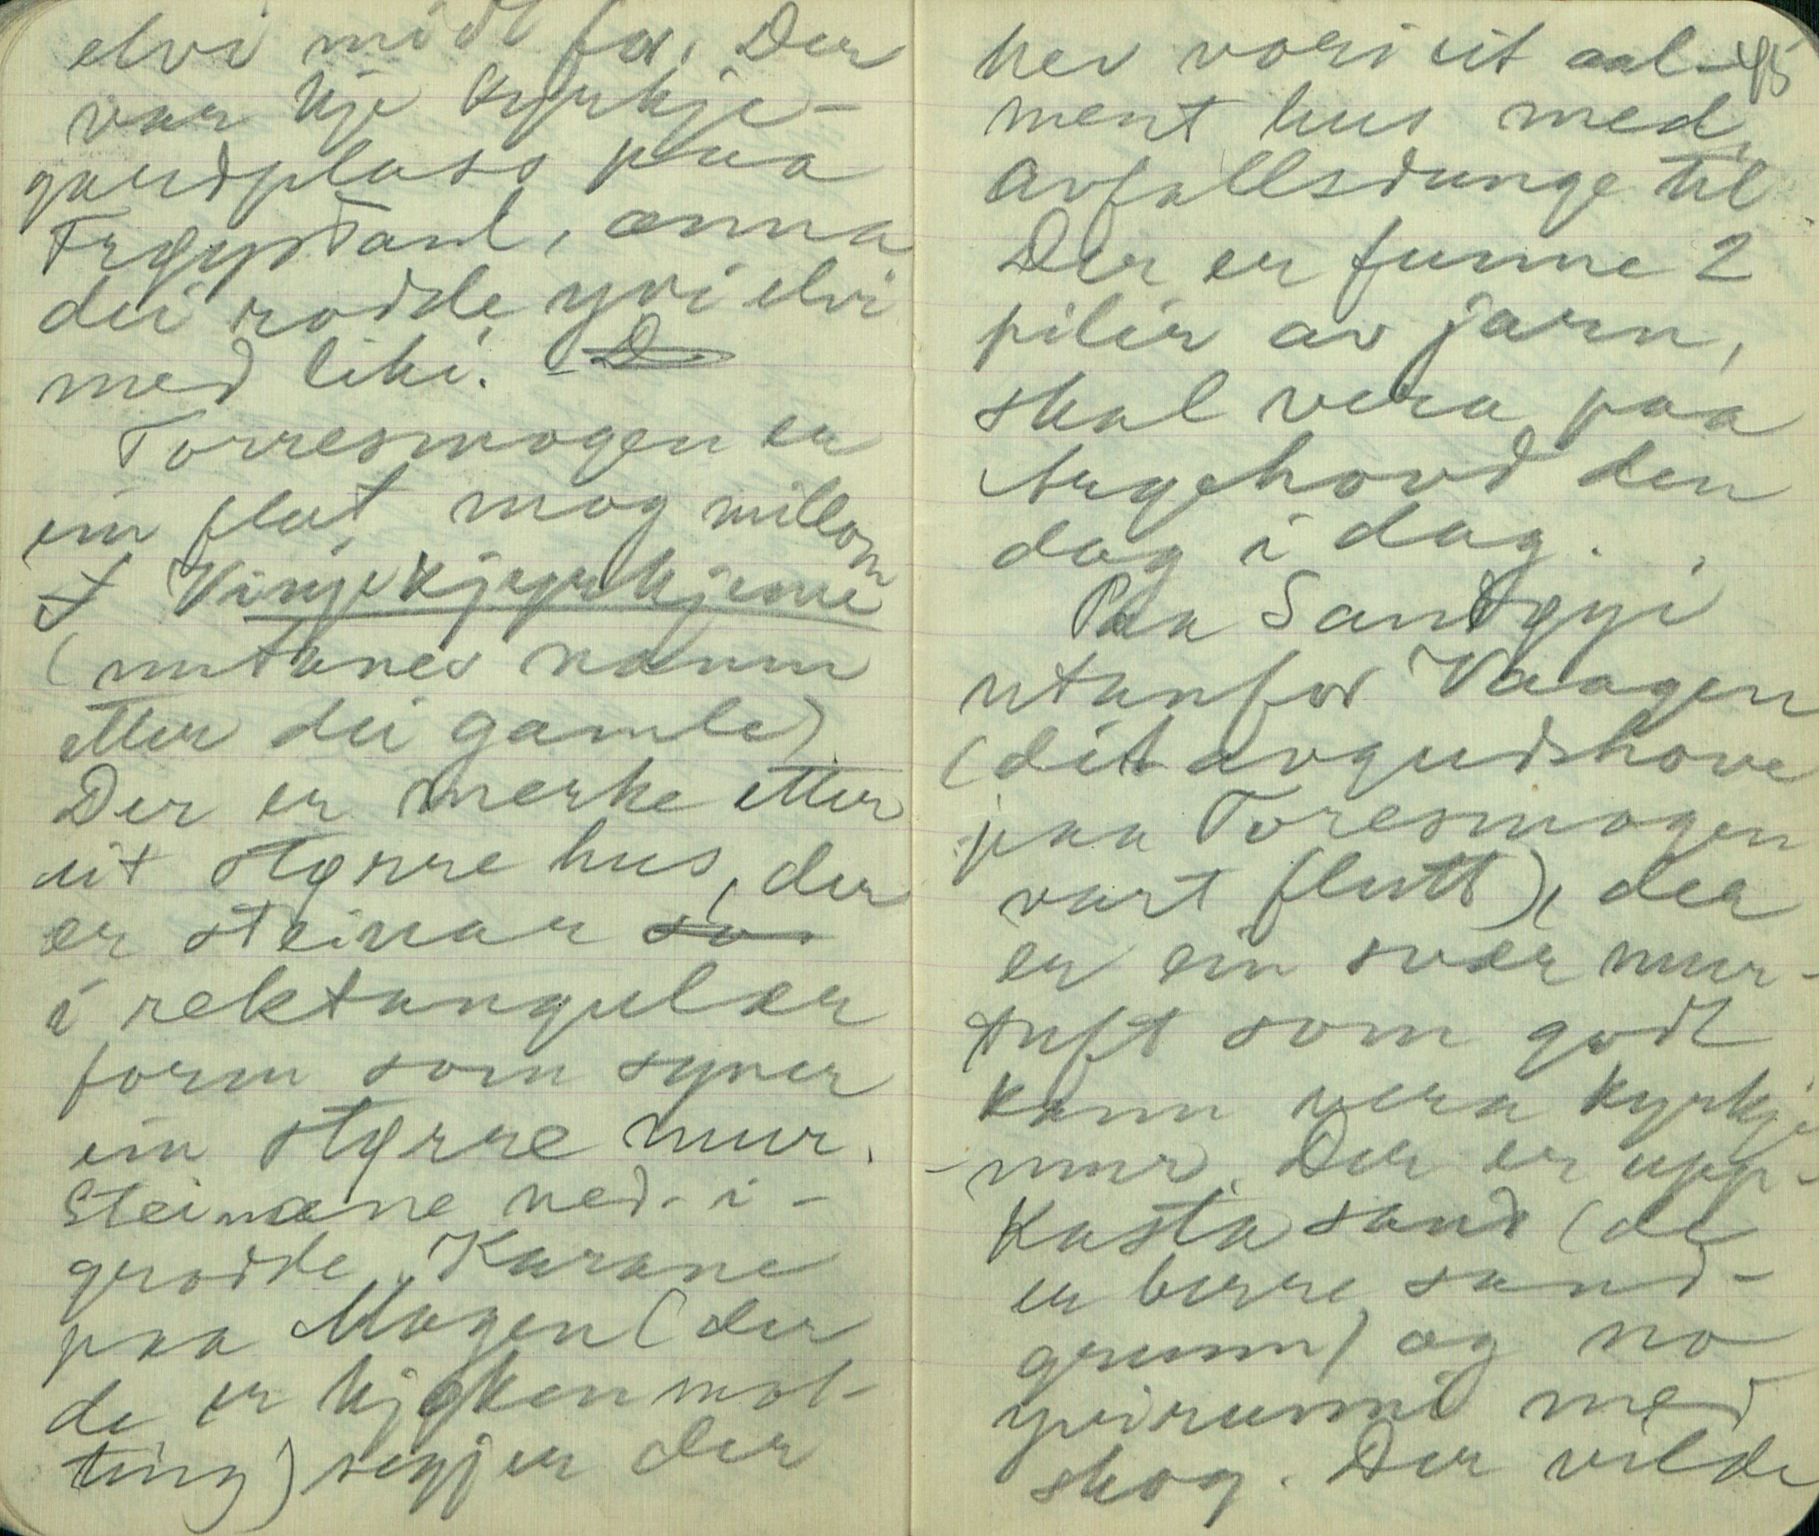 elvi midt for. Der
var kje kyrkje-
gardplass paa
Frøystaul, anna
dei rodde yvi elvi
med liki. - D
Torresmogen er
ein flat mog millom
t Vinjekjyrkjunne
(nutanes namn
etter dei gamle)
Der er merke etter
eit større hus, der
er steinar so
i rektangulær
form som syner
ein større mur.
Steinane ned-i-
grodde. Karane
paa Mogen (der
de er kjøkenmøl-
ting) segjer der
hev vori eit aal- 45
ment hus med
avfallsdunge til
Der er funne 2
pilir av jarn,
skal vera paa
Argehovd den
dag i dag.
Paa Sandøyi
utanfor Vaagen
(dit avgudshove
paa Toresmogen
vart flutt), der
er ein svær mur-
tuft som godt
kann vera kyrkje
-mur. Der er upp-
kasta sand (de
er berre sand-
grunn) og no
yvirunni med
skog. Der vilde